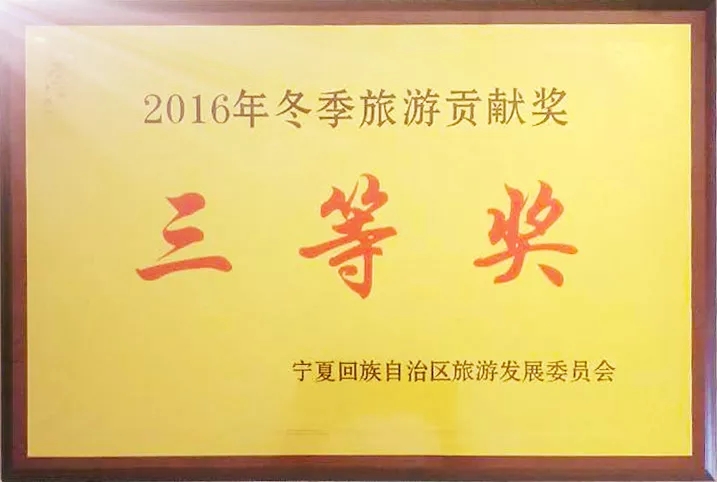 2016年冬季旅游贡献奖
三等奖
宁夏回族自治区旅游发展委员会